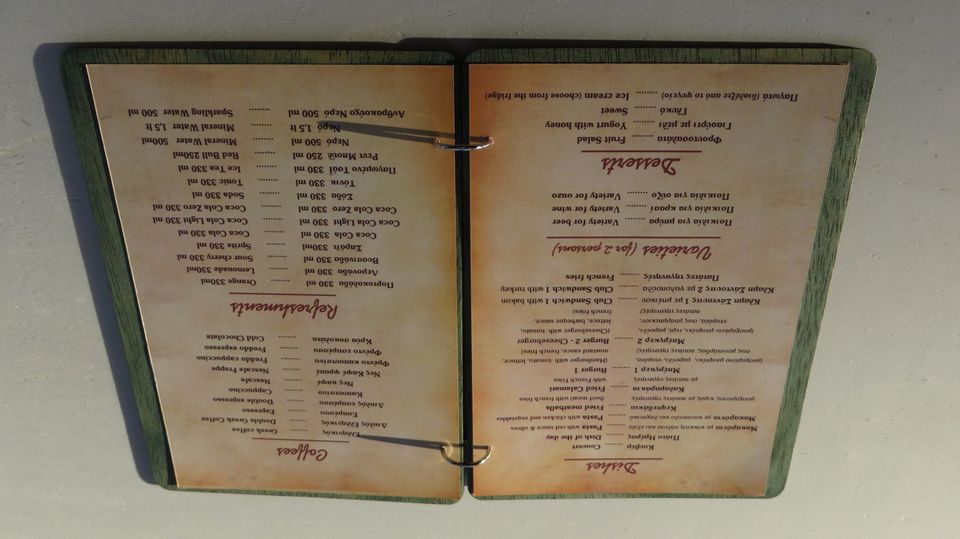 Dishes
Κουβέρ ........ Couvert
Πιάτο Ημέρας ........ Dish of the day
Μακαρόνια με κόκκινη σάλτσα και ελιές ........ Pasta with red sauce & olives
Μακαρόνια με κοτόπουλο και λαχανικά ........ Pasta with chicken and vegetables
Κεφτεδάκια ........ Fried meatballs
(μοσχαρίσιος κιμάς) με πατάτες τηγανητές (beef meat) with french fries
Καλαμαράκια ........ Fried Calamari
με πατάτες τηγανητές with French Fries
Μπέργκερ 1 ........ Burger 1
(μοσχαρίσιο μπιφτέκι, μαρούλι, ντομάτα, (Hamburger with tomato, lettuce,
σως μουστάρδας, πατάτες τηγανητές) mustard sauce, french fries)
Μπέργκερ 2 ........ Burger 2 - Cheeseburger
(μοσχαρίσιο μπιφτέκι, τυρί, μαρούλι, (Cheeseburger with tomato,
ντομάτα, σως μπάρμπεκιου, lettuce, barbeque sauce,
πατάτες τηγανητές) french fries)
Κλαμπ Σάντουιτς 1 με μπέικον ........ Club Sandwich 1 with bakon
Κλαμπ Σάντουιτς 2 με γαλοπούλα ........ Club Sandwich 1 with turkey
Πατάτες τηγανητές ........ French fries
Varieties (for 2 persons)
Ποικιλία για μπύρα ........ Variety for beer
Ποικιλία για κρασί ........ Variety for wine
Ποικιλία για ούζο ........ Variety for ouzo
Desserts
Φρουτοσαλάτα ........ Fruit Salad
Γιαούρτι με μέλι ........ Yogurt with honey
Γλυκό ........ Sweet
Παγωτά (διαλέξτε από το ψυγείο) ........ Ice cream (choose from the fridge)
Coffees
Ελληνικός ........ Greek coffee
Διπλός Ελληνικός ........ Double Greek Coffee
Εσπρέσο ........ Espresso
Διπλός εσπρέσο ........ Double espresso
Καπουτσίνο ........ Cappuccino
Νες καφέ ........ Nescafe
Νες Καφέ φραπέ ........ Nescafe Frappe
Φρέντο καπουτσίνο ........ Freddo cappuccino
Φρέντο εσπρέσσο ........ Freddo espresso
Κρύα σοκολάτα ........ Cold Chocolate
Refreshments
Πορτοκαλάδα 330ml ........ Orange 330ml
Λεμονάδα 330 ml ........ Lemonade 330ml
Βυσσινάδα 330 ml ........ Sour cherry 330 ml
Σπράιτ 330ml ........ Sprite 330 ml
Coca Cola 330 ml ........ Coca Cola 330 ml
Coca Cola Light 330 ml ........ Coca Cola Light 330 ml
Coca Cola Zero 330 ml ........ Coca Cola Zero 330 ml
Σόδα 330 ml ........ Soda 330 ml
Τόνικ 330 ml ........ Tonic 330 ml
Παγωμένο Τσάϊ 330 ml ........ Ice Tea 330 ml
Ρεντ Μπούλ 250 ml ........ Red Bull 250ml
Νερό 500 ml ........ Mineral Water 500ml
Νερό 1,5 lt ........ Mineral Water 1,5 lt
Ανθρακούχο Νερό 500 ml ........ Sparkling Water 500 ml